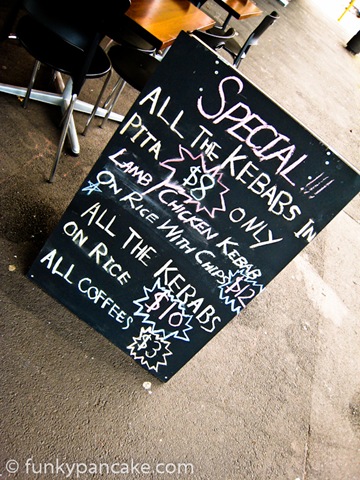 SPECIAL!!!
ALL THE KEBABS IN
PITA $8 ONLY
LAMB/CHICKEN KEBAB
ON RICE WITH CHIPS $12
ALL THE KEBABS
ON RICE $10
ALL COFFEES $3
© funkypancake.com